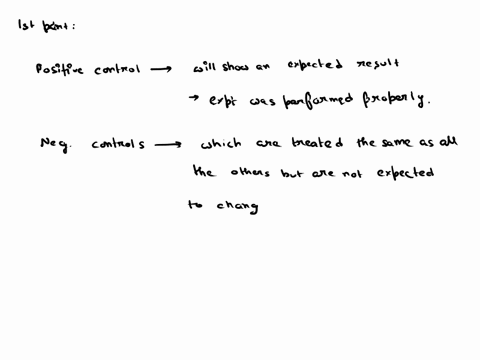 1st point:
Positive control → will show an expected result
→ expt was performed properly.
Neg. controls → which are treated the same as all
the others but are not expected
to chang